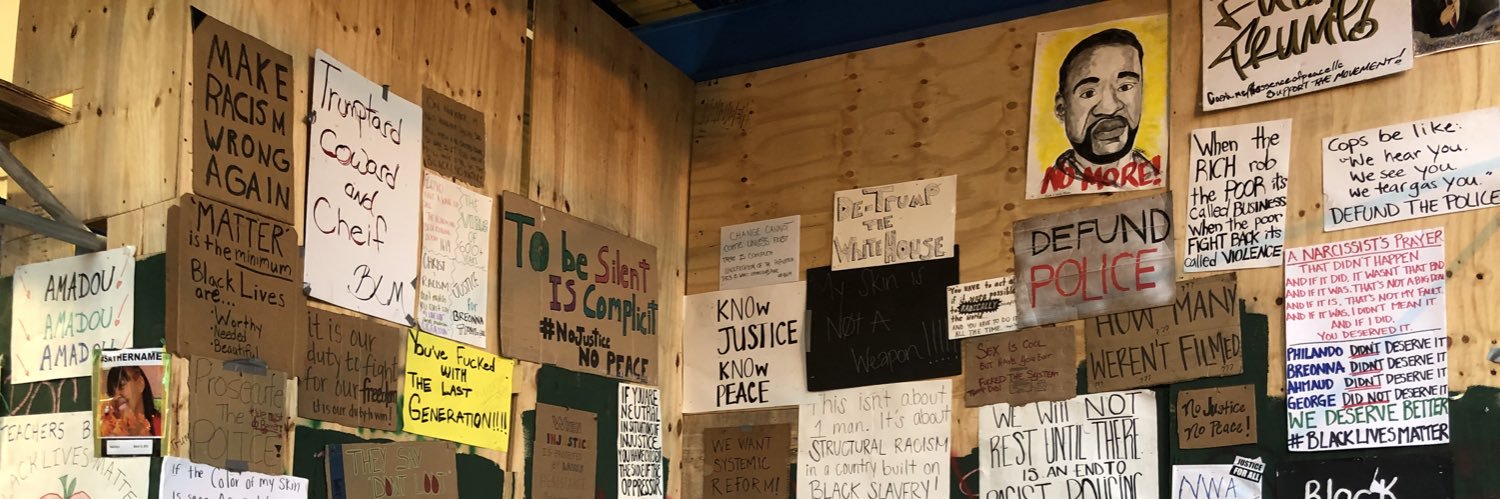 MAKE
RACISM
WRONG
AGAIN
'MATTER'
is the minimum
Black Lives
are...
Worthy
Needed
Beautiful
AMADOU!
AMADOU!
AMADOU!
#SAYHERNAME
TEACHERS
BLACK LIVES
MATTER
Prosecute
The
POLICE!
If the Color of my Skin
Trumptard
Coward
and
Cheif
BLM
it is our
duty to fight
for our freedom
it is our duty to win!
You've Fucked
WITH
THE LAST
GENERATION!!!!
THEY SAY
"DON'T LOOT"
Justice
for
BREONNA
To be Silent
IS Complicit
#NoJustice
NO PEACE
WHEN
INJUSTICE
IF YOU ARE
NEUTRAL
IN SITUATIONS
OF
INJUSTICE,
YOU HAVE CHOSEN
THE SIDE OF THE
OPPRESSOR
CHANGE CANNOT
COME UNLESS FIRST
KNOW
JUSTICE
KNOW
PEACE
WE WANT
SYSTEMIC
REFORM!
DE-TRUMP
THE
WHITEHOUSE
My Skin is
Not A
Weapon!!!!
This isn't about
1 man. It's about
STRUCTURAL RACISM
in a country built on
BLACK SLAVERY!
"You have to act as
if it were possible
to RADICALLY
the world
AND YOU HAVE TO DO IT
ALL THE TIME."
SEX IS COOL
BUT HAVE YOU EVER
FUCKED THE SYSTEM
NO MORE!
DEFUND
POLICE
HOW MANY
WEREN'T FILMED
???
WE WILL NOT
REST UNTIL THERE
IS AN END TO
RACIST POLICING
FUCK
TRUMP!
SUPPORT THE MOVEMENT!
When the
RICH rob
the POOR its
called BUSINESS
when the poor
FIGHT BACK its
called VIOLENCE
Cops be like:
"We hear you.
We see you.
We tear gas you."
DEFUND THE POLICE
A NARCISSIST'S PRAYER
THAT DIDN'T HAPPEN
AND IF IT DID, IT WASN'T THAT BAD
AND IF IT WAS, THAT'S NOT A BIG DEAL
AND IF IT IS, THAT'S NOT MY FAULT.
AND IF IT WAS, I DIDN'T MEAN IT
AND IF I DID,
YOU DESERVED IT.
PHILANDO DIDN'T DESERVE IT
BREONNA DIDN'T DESERVE IT
AHMAUD DIDN'T DESERVE IT
GEORGE DID NOT DESERVE IT
WE DESERVE BETTER
#BLACKLIVESMATTER
No Justice
No Peace!
JUSTICE
FOR ALL
NWA
Black